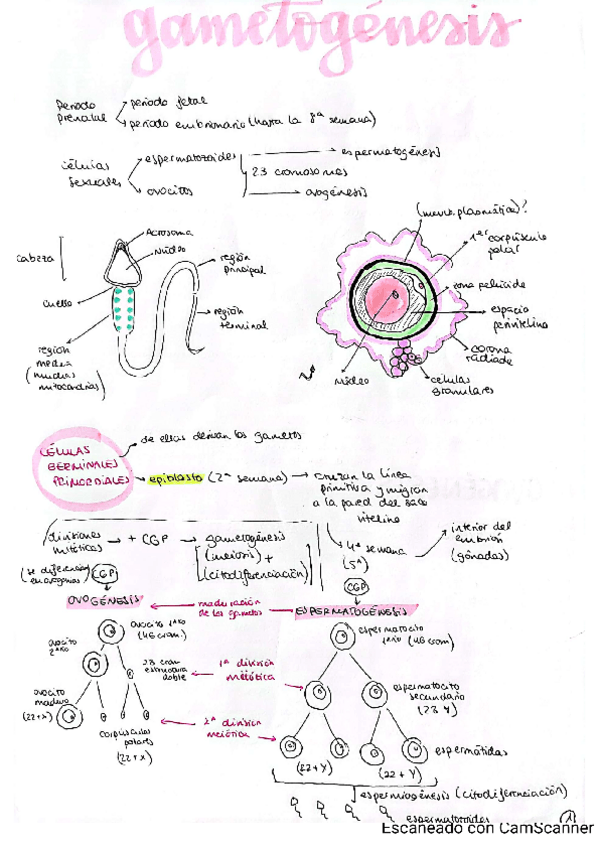 gametogénesis
Periodo prenatal
periodo fetal
periodo embrionario (hasta la 8ª semana)
células sexuales
espermatozoides
espermatogénesis
23 cromosomas
ovocitos
ovogénesis
cabeza
Acrosoma
Núcleo
región principal
cuello
región terminal
región media (muchas mitocondrias)
(memb. plasmática)?
1er corpúsculo polar
zona pelúcida
espacio perivitelino
corona radiada
núcleo
células granulares
CÉLULAS GERMINALES PRIMORDIALES
de ellas derivan los gametos
epiblasto (2ª semana)
cruzan la línea
primitiva y migran
a la pared del saco
vitelino
divisiones mitóticas
+ CGP
gametogénesis
(meiosis) +
(citodiferenciación)
4ª semana
(5ª)
interior del embrión (gónadas)
(se diferencian en ovogonias)
CGP
CGP
OVOGÉNESIS
maduración de los gametos
ESPERMATOGÉNESIS
ovocito 1ario
(46 crom)
espermatocito 1ario (46 crom)
ovocito 2ario
23 crom estructura doble
1ª división meiótica
espermatocito secundario
(23 Y)
ovocito maduro
(22+X)
corpúsculos polares
(22+X)
2ª división meiótica
espermátidas
(22+Y)
(22+Y)
espermiogénesis (citodiferenciación)
espermatozoides
1
Escaneado con CamScanner